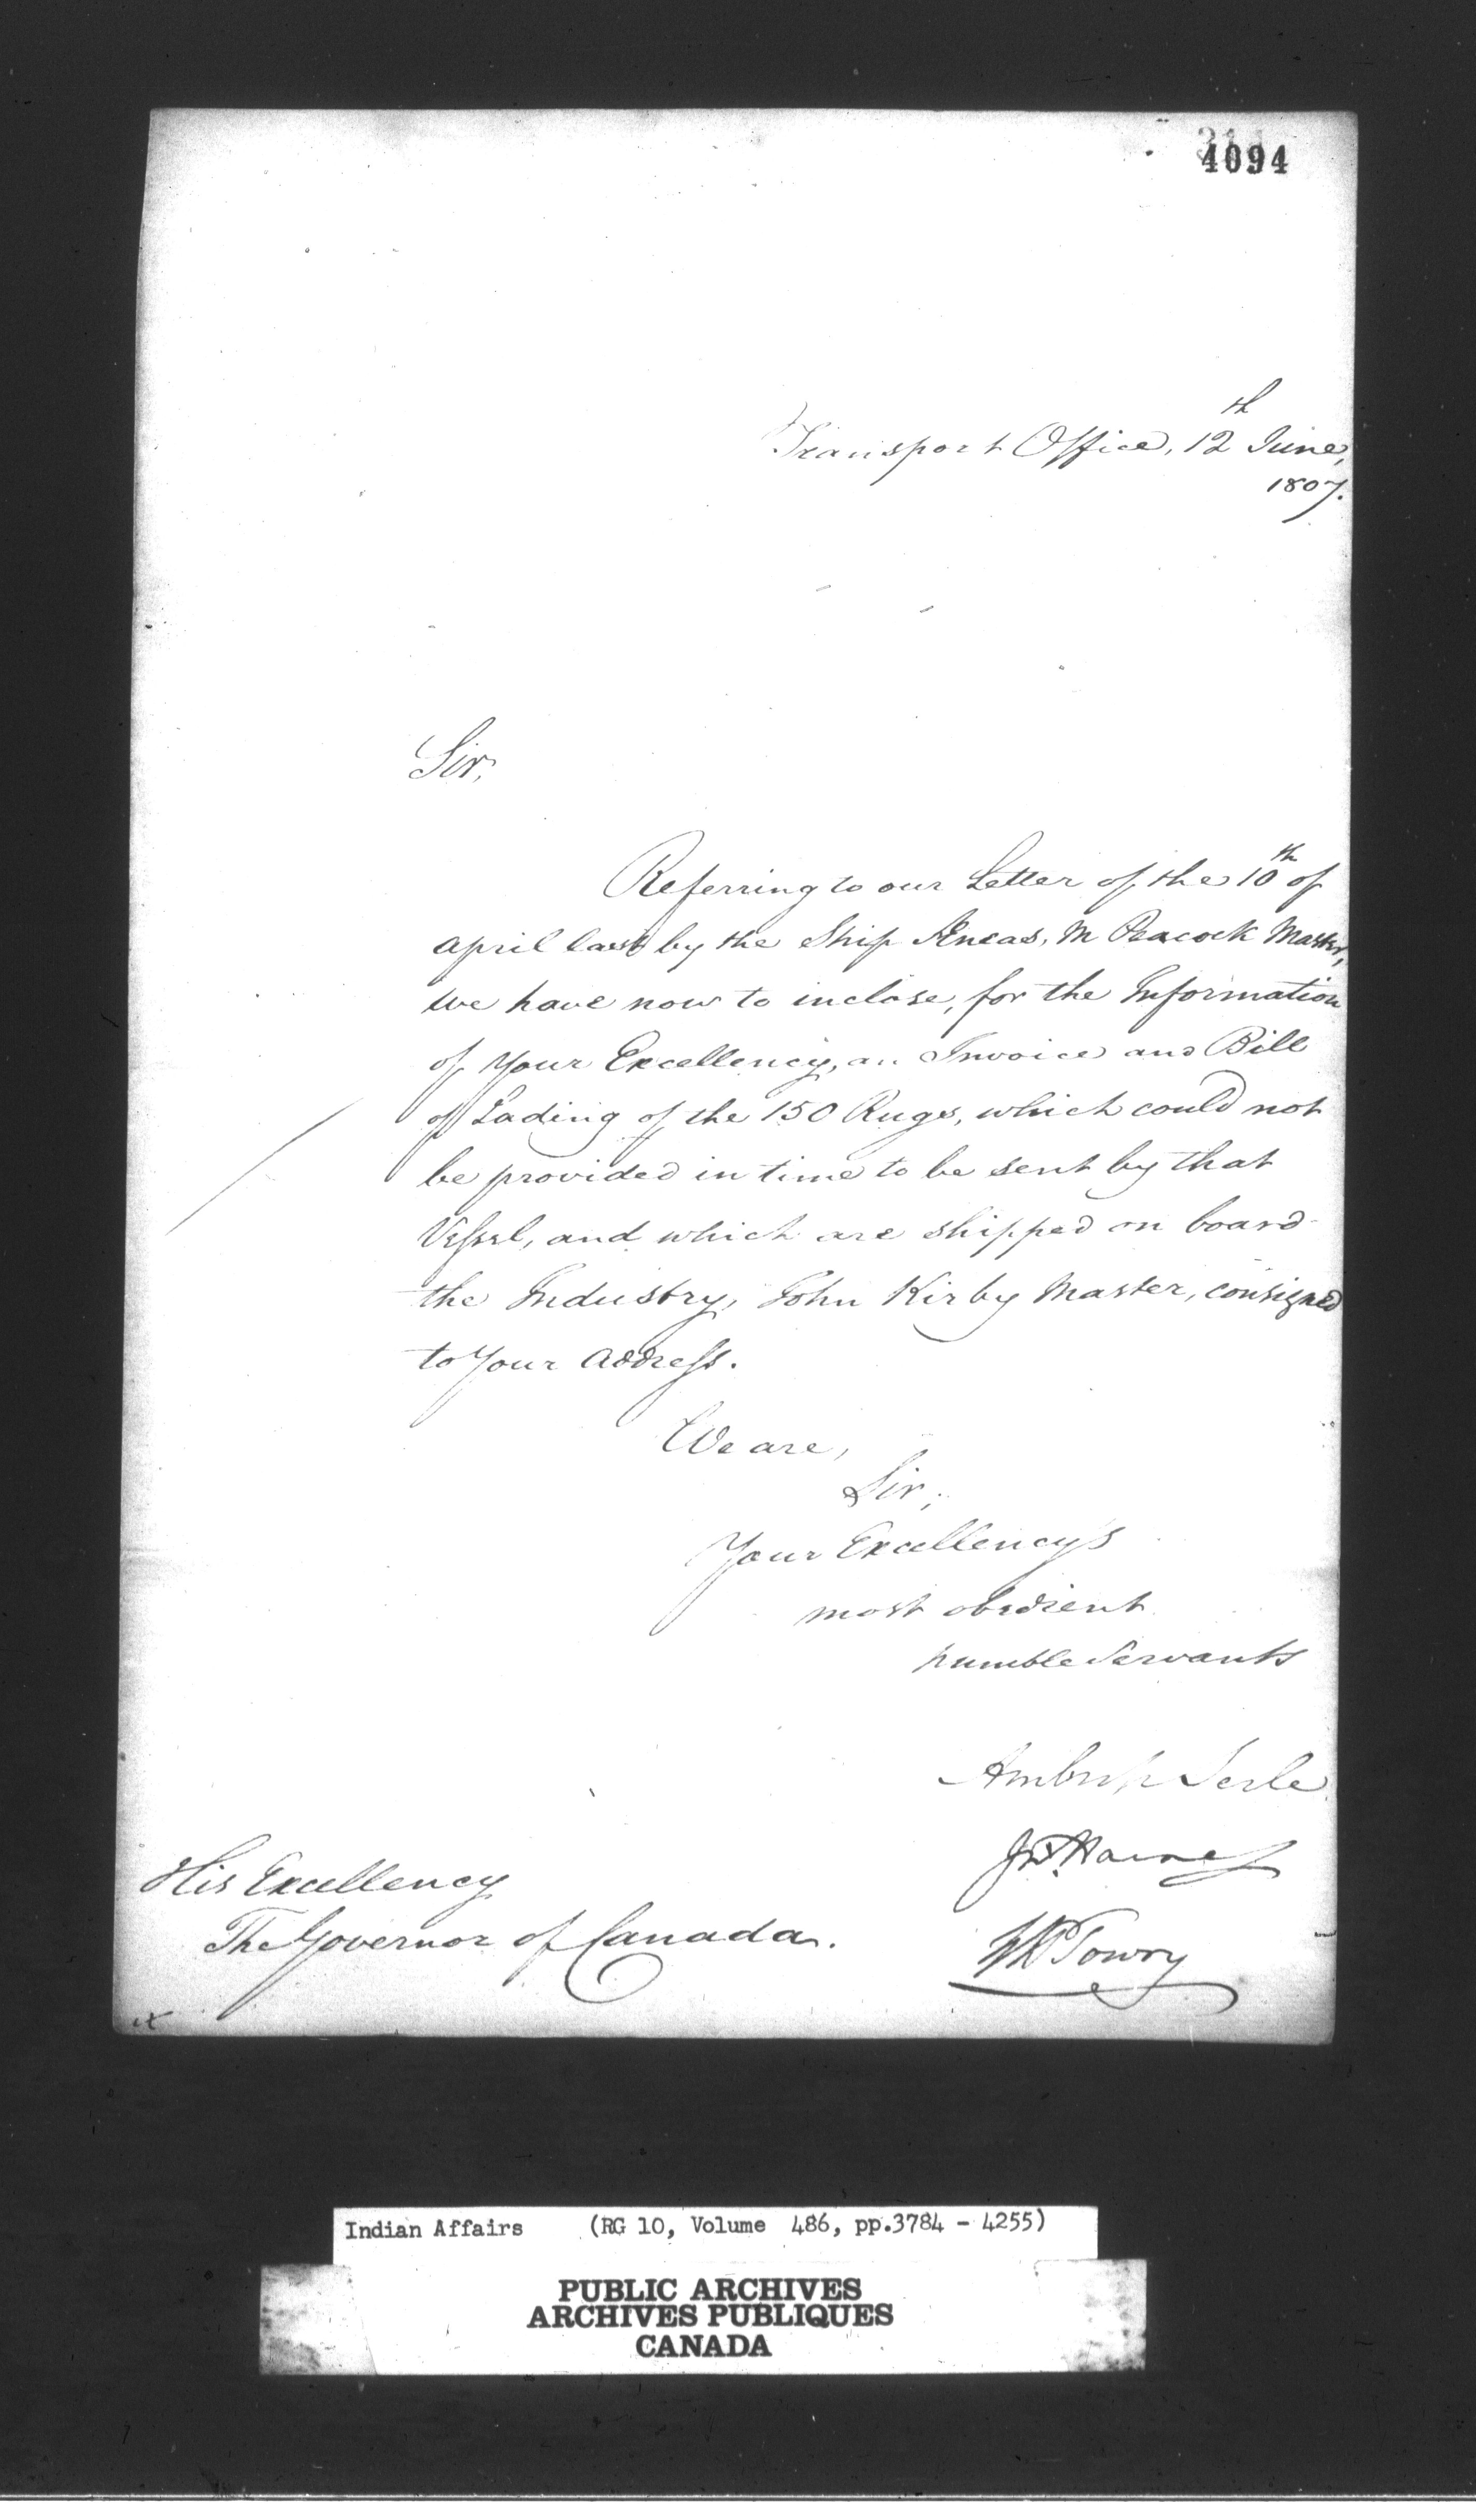 4094
Transport Office, 12th June,
1807.
Sir,
Referring to our Letter of the 10th of
April last by the Ship Æneas, M Peacock Master,
we have now to inclose, for the Information
of Your Excellency, an Invoice and Bill
of Lading of the 150 Rugs, which could not
be provided in time to be sent by that
Vessel, and which are shipped on board
the Industry, John Kirby Master, consigned
to Your Address.
We are,
Sir,
Your Excellency's
most obedient
humble Servants
Ambrose Serle
His Excellency
The Governor of Canada.
Towry
Indian Affairs (RG 10, Volume 486, pp.3784 - 4255)
PUBLIC ARCHIVES
ARCHIVES PUBLIQUES
CANADA